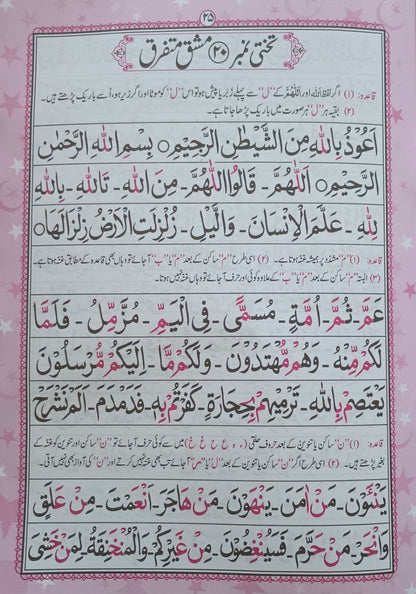 ۲۵
تختی نمبر (۲۰) مشق متفرق
قاعدہ: (۱) اگر لفظ اللہ اور اَللّٰهُمَّ کے "ل" سے پہلے زَبر یا پیش ہو تو اس "ل" کو موٹا اور اگر زیر ہو، اُسے باریک پڑھتے ہیں۔
(۲) بقیہ ہر "ل" ہر صورت میں باریک پڑھا جاتا ہے۔
اَعُوْذُ بِاللّٰهِ مِنَ الشَّيْطٰنِ الرَّجِيْمِ ○ بِسْمِ اللّٰهِ الرَّحْمٰنِ
الرَّحِيْمِ ○ اَللّٰهُمَّ - قَالُوا اللّٰهُمَّ - مِنَ اللّٰهِ - تَاللّٰهِ - بِاللّٰهِ
لِلّٰهِ - عَلَّمَ الْاِنْسَانَ - وَالَّيْلِ - زُلْزِلَتِ الْاَرْضُ زِلْزَالَهَا ○
قاعدہ: (۱) "م" مشدّد پر ہمیشہ غنہ ہوتا ہے۔ (۲) اسی طرح "م" ساکن کے بعد "م" یا "ب" آ جائے تو وہاں بھی قاعدہ کے مطابق غنہ ہوتا ہے۔
(۳) البتہ "م" ساکن کے بعد "م" یا "ب" کے علاوہ کوئی اور حرف آ جائے تو وہاں غنہ نہیں ہوتا۔
عَمَّ - ثُمَّ - اُمَّةٍ - مُسَمًّى - فِي الْيَمِّ - مُزَّمِّلُ - فَلَمَّا
لَكُمْ مِّنْهُ - وَهُمْ مُّهْتَدُوْنَ - وَلَكُمْ مَّا - اِلَيْكُمْ مُّرْسَلُوْنَ
يَعْتَصِمْ بِاللّٰهِ - تَرْمِيْهِمْ بِحِجَارَةٍ - كَفَرْتُمْ بِهٖ - فَدَمْدَمَ - اَلَمْ نَشْرَحْ
قاعدہ: (۱) "ن" ساکن یا تنوین کے بعد حروفِ حلقی (ء ہ ع ح غ خ) میں سے کوئی حرف آ جائے تو "ن" ساکن اور تنوین کو غنہ کے
بغیر پڑھتے ہیں۔ (۲) اسی طرح اگر "ن" ساکن یا تنوین کے بعد "ل" یا "ر" آ جائے تب بھی غنہ نہیں کرتے اور "ن" کی آواز بھی نہیں آتی۔
يَنْئَوْنَ - مَنْ اٰمَنَ - يَنْهَوْنَ - مَنْ هَاجَرَ - اَنْعَمْتَ - مِنْ عَلَقٍ
وَانْحَرْ - مَنْ حَرَّمَ - فَسَيُنْغِضُوْنَ - مِنْ غَيْرِكُمْ - وَالْمُنْخَنِقَةُ - لِمَنْ خَشِيَ